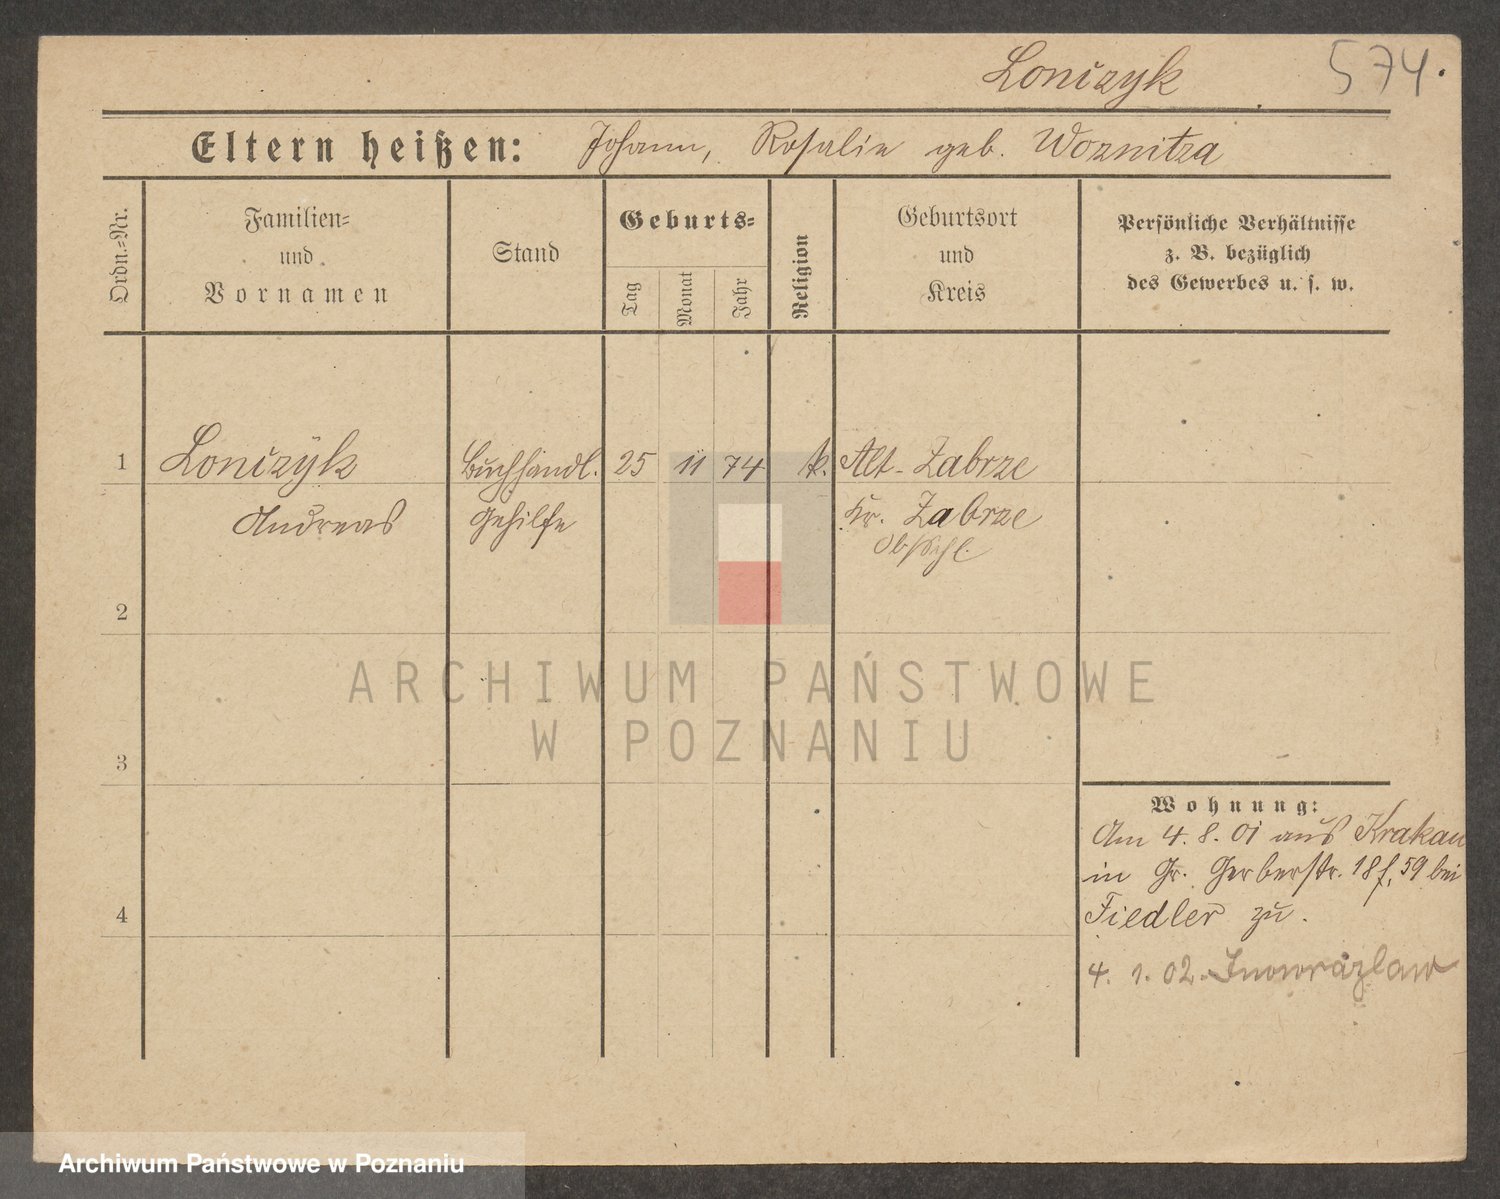 Lonczyk 574.
Eltern heißen: Johann, Rosalie geb. Woznitza
Ordn.=Nr.
Familien=
und
Vornamen
Stand
Geburts=
Tag
Monat
Jahr
Religion
Geburtsort
und
Kreis
Persönliche Verhältnisse
z. B. bezüglich
des Gewerbes u. s. w.
1 Lonczyk Buchhandl. 25 11 74 k. Alt-Zabrze
Andreas Gehilfe Kr. Zabrze
Ob/Schl.
2
ARCHIWUM PAŃSTWOWE
W POZNANIU
3
Wohnung:
Am 4. 8. 01 aus Krakau
in Gr. Gerberstr. 18 f, 59 bei
4
Fiedler zu.
4. 1. 02. Inowrazlaw
Archiwum Państwowe w Poznaniu